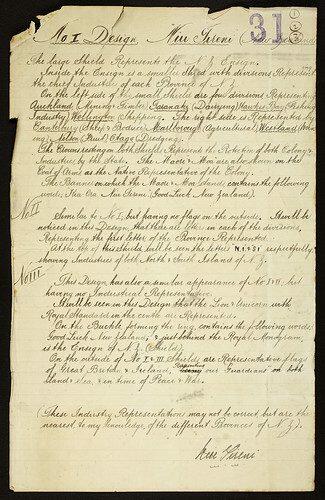 No I Design. Kiu Tireni
31
The large Shield Represent the N Z Ensign.
Inside the Ensign is a smaller Shield with divisions Representing
the chief Industry of each Province of N Z
On the left side of the small shield are four divisions Representing
Auckland (Mining & Timber) Taranaki (Dairying) Hawkes Bay (Fishing
Industry) Wellington Shipping. The right side is Represented by
Canterbury (Sheep & Produce) Marlborough (Agricultural) Westland
Nelson (Fruit) Otago (Dredging).
The Crown resting on both Shields Represent the Protection of both Colony &
Industries by the State. The Maori & Moa are also shown on the
Coat of Arms as the Native Representative of the Colony.
The Banner on which the Maori & Moa stand, contains the following
words, Kia Ora. New Tireni (Good Luck New Zealand).
No II
Similar to No I, but having no flags on the outside. It will be
noticed in this Design, that there are letters in each of the divisions,
Representing the first letter of the Province Represented.
At the top of this shield will be seen the letters N.I. & S.I respectfully
showing Industries of both North & South Island of N.Z.
No III
This Design has also a similar appearance of No I & II. but
having no Industrial Representative
It will be seen in this Design that the Lion & Unicorn with
Royal Standard in the centre are Represented.
On the Buckle forming the ring, contains the following words
Good Luck New Zealand, & just behind the Royal Monogram,
is the Ensign of N.Z. (Shield).
On the outside of No I & III Shields are Representative flags
of Great Britain & Ireland, Representing our Guardians on both
land & sea, & in time of Peace & War.
(These Industry Representations may not be correct but are the
nearest to my knowledge of the different Provinces of N.Z.).